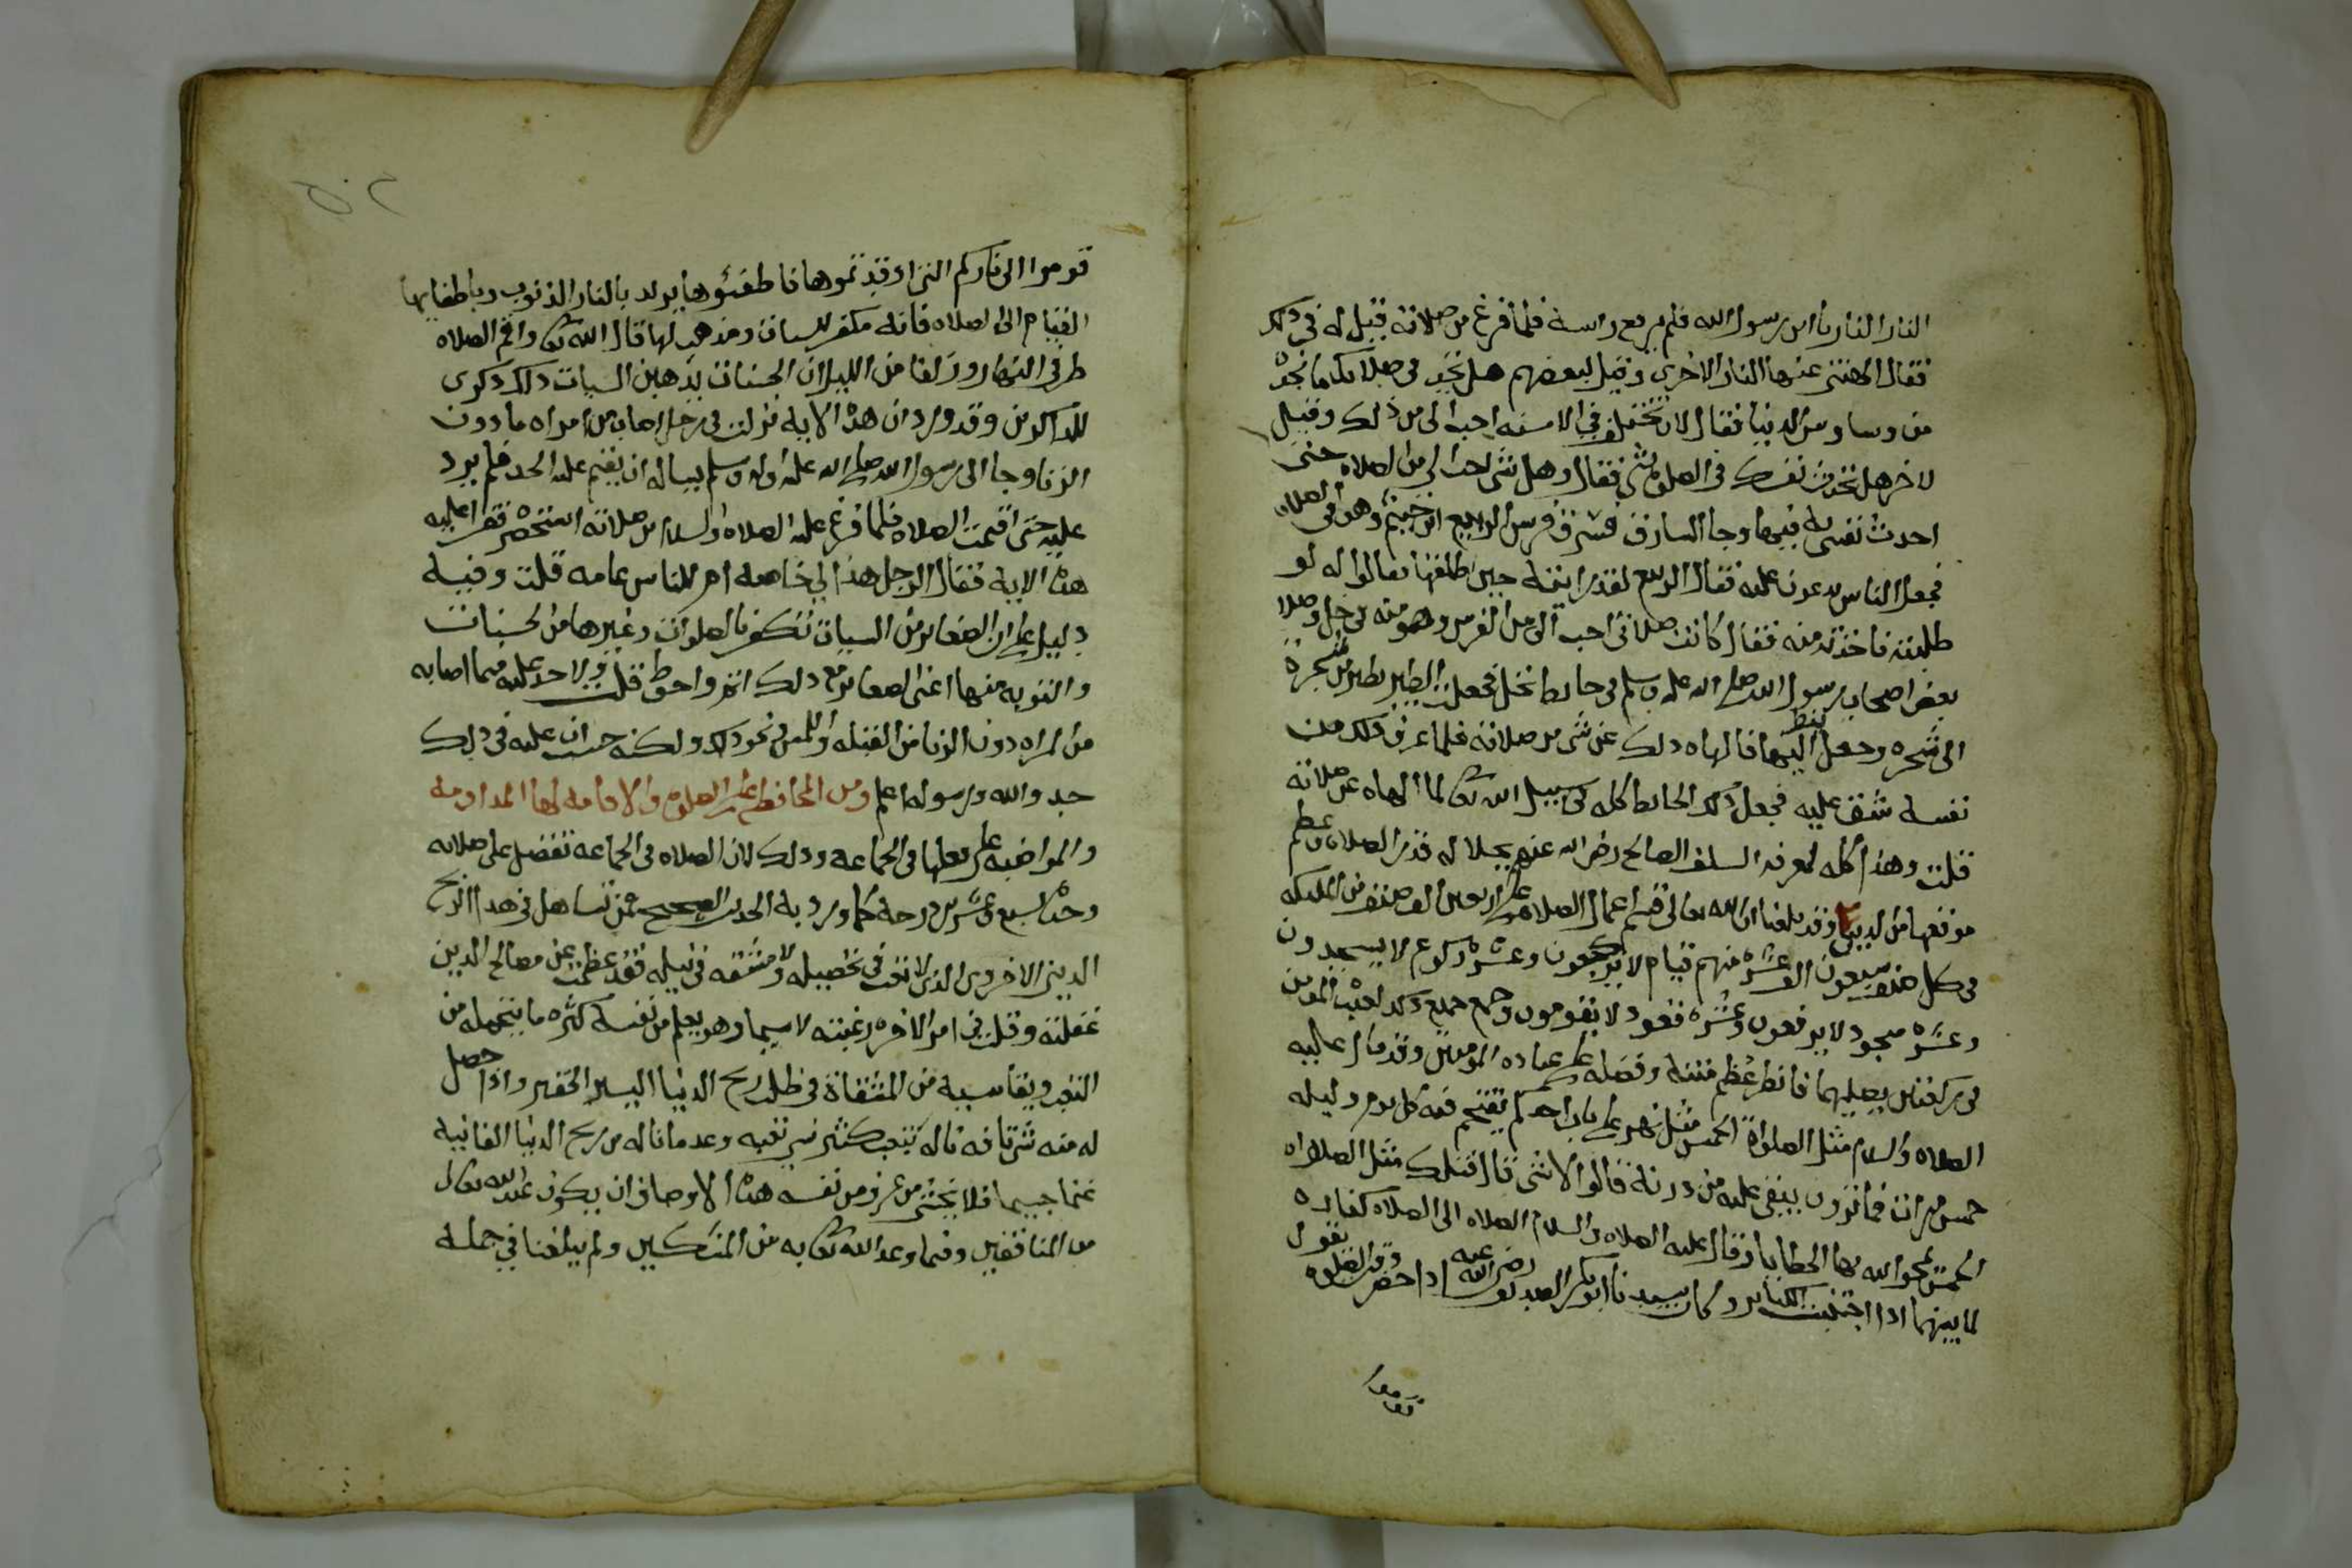 النار النار يا ابن رسول الله فلم يرفع راسه فلما فرغ من صلاته قيل له في ذلك
فقال الهتني عنها النار الاخرى وقيل لبعضهم هل تجد في صلاتك ما نجده
من وساوس الدنيا فقال لان تختلف في الاسنه احب الي من ذلك وقيل
لاخر هل تحدث نفسك في الصلوة بشي فقال وهل شي احب الي من الصلاه حتى
احدث نفسي به فيها وجا السارق فسرق فرس الربيع ابن خيثم وهو في الصلاه
فجعل الناس يدعون عليه فقال الربيع لقد رايته حين اطلقها فقالوا له لو
طلبته فاخذته منه فقال كانت صلاتي احب الي من الفرس وهو منه في حل وصلا
بعض اصحاب رسول الله صلى الله عليه وسلم في حايط نخل فجعلت الطير يطير من شجرة
الى شجره وجعل ينظر اليها فالهاه ذلك عن شي من صلاته فلما عرف ذلك من
نفسه شق عليه فجعل ذلك الحايط كله في سبيل الله تعالى لما الهاه عن صلاته
قلت وهذا كله لمعرفة السلف الصالح رضي الله عنهم بجلاله قدر الصلاه وعظم
موقعها من الدين وقد بلغنا ان الله تعالى قسم اعمال الصلاه على اربعين الف صنف من المليكه
في كل صنف سبعون الف عشره منهم قيام لا يركعون وعشره ركوع لا يسجدون
وعشره سجود لا يرفعون وعشره قعود لا يقومون وجمع جميع ذلك لعبده المومن
في ركعتين يصليهما فانظر عظم منته وفضله على عباده المومنين وقد قال عليه
الصلاه والسلام مثل الصلواة الخمس مثل نهر على باب احدكم يقتحم فيه كل يوم وليله
خمس مرات فما ترون يبقى عليه من درنه قالوا لا شي قال فتلك مثل الصلواه
الخمس يمحوا الله بها الخطايا وقال عليه الصلاه والسلام الصلاه الى الصلاه كفاره
لما بينهما اذا اجتنبت الكباير وكان سيدنا ابو بكر الصديق رضي الله عنه اذا حضر وقت الصلوه يقول
قوموا
قوموا الى ناركم التي اوقدتموها فاطفئوها يريد بالنار الذنوب وباطفايها
القيام الى الصلاه فانه مكفر للسيات ومذهب لها قال الله تعالى واقم الصلاه
طرفي النهار وزلفا من الليل ان الحسنات يذهبن السيات ذلك ذكرى
للذاكرين وقد ورد ان هذه الايه نزلت في رجل اصاب من امراه ما دون
الزنا وجا الى رسول الله صلى الله عليه واله وسلم يساله ان يقيم عليه الحد فلم يرد
عليه حتى اقيمت الصلاه فلما فرغ عليه الصلاه والسلام من صلاته استحضره فقرا عليه
هذه الاية فقال الرجل هذا لي خاصه ام للناس عامه قلت وفيه
دليل على ان الصغاير من السيات تكفرها الصلوات وغيرها من الحسنات
والتوبه منها اعني الصغاير مع ذلك اتم واحوط قلت ولا حد عليه فيما اصابه
من المراه دون الزنا من القبله واللمس ونحو ذلك ولكنه حسب ان عليه في ذلك
حد والله ورسوله اعلم ومن المحافظه على الصلوة والاقامه لها المداومه
والمواضبه على فعلها في الجماعه وذلك لان الصلاه في الجماعه تفضل على صلاته
وحده بسبع وعشرين درجه كما ورد به الحديث الصحيح فمن تساهل في هذا الربح
الديني الاخروي الذي لا تعب في تحصيله ولا مشقه في نيله فقد عظمت عن مصالح الدين
غفلته وقلت في امر الاخره رغبته لا سيما وهو يعلم من نفسه كثره ما يتحمله من
التعب ويقاسيه من المشقاة في طلب ربح الدنيا اليسير الحقير واذا حصل
له منه شي تافه ناله بتعب كثير نسي تعبه وعد ما ناله من ربح الدنيا الفانيه
غنما جسيما افلا يخشى من عرف من نفسه هذه الاوصاف ان يكون عند الله تعالى
من المنافقين وفيما وعد الله تعالى به من المتشككين ولم يبلغنا في جمله